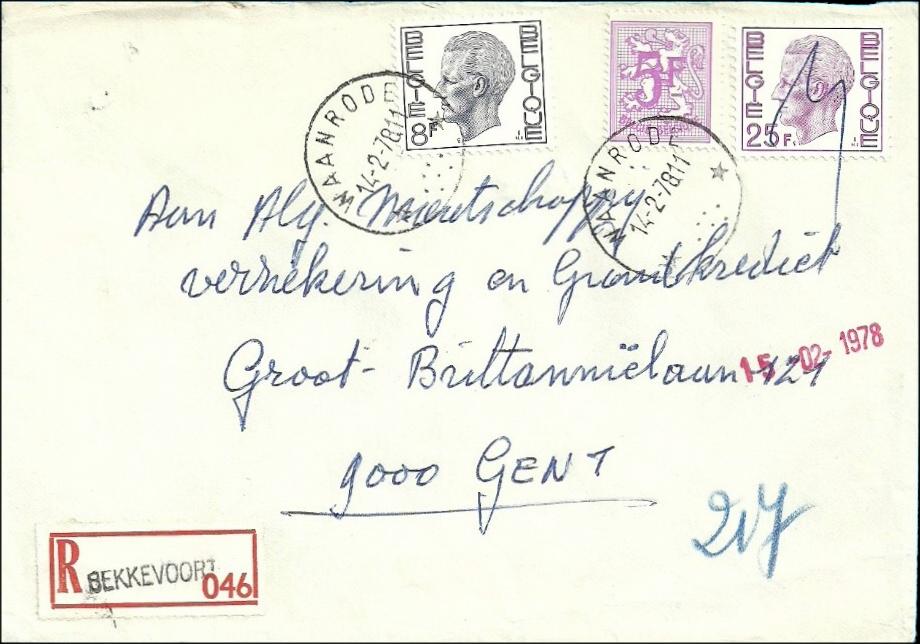 BELGIE BELGIQUE
8F
5F
BELGIE BELGIQUE
25F.
WAANRODE
14-2-78 11
WAANRODE
14-2-78 11
Aan Alg. Maatschappy
verzekering en Grondkrediet
Groot-Brittanniëlaan 121
15 02- 1978
9000 GENT
R
BEKKEVOORT
046